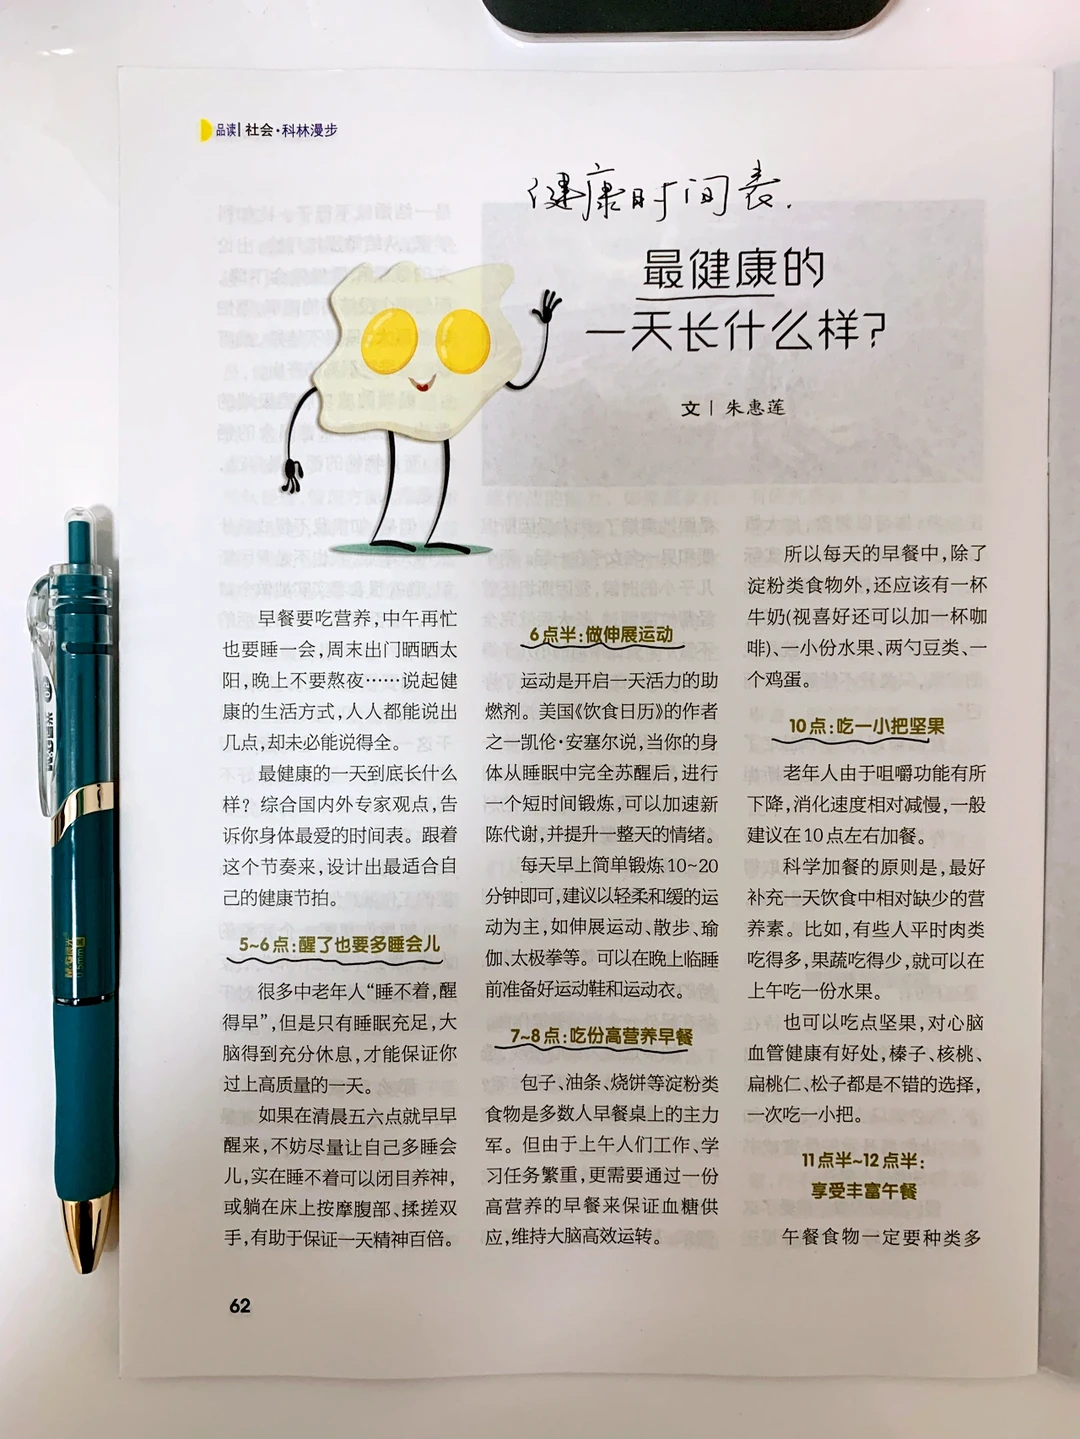 品读 | 社会·科林漫步
健康时间表.
最健康的
一天长什么样?
文 | 朱惠莲
早餐要吃营养,中午再忙
也要睡一会,周末出门晒晒太
阳,晚上不要熬夜……说起健
康的生活方式,人人都能说出
几点,却未必能说得全。
最健康的一天到底长什么
样? 综合国内外专家观点,告
诉你身体最爱的时间表。跟着
这个节奏来,设计出最适合自
己的健康节拍。
5~6点:醒了也要多睡会儿
很多中老年人“睡不着,醒
得早”,但是只有睡眠充足,大
脑得到充分休息,才能保证你
过上高质量的一天。
如果在清晨五六点就早早
醒来,不妨尽量让自己多睡会
儿,实在睡不着可以闭目养神,
或躺在床上按摩腹部、揉搓双
手,有助于保证一天精神百倍。
6点半:做伸展运动
运动是开启一天活力的助
燃剂。美国《饮食日历》的作者
之一凯伦·安塞尔说,当你的身
体从睡眠中完全苏醒后,进行
一个短时间锻炼,可以加速新
陈代谢,并提升一整天的情绪。
每天早上简单锻炼10~20
分钟即可,建议以轻柔和缓的运
动为主,如伸展运动、散步、瑜
伽、太极拳等。可以在晚上临睡
前准备好运动鞋和运动衣。
7~8点:吃份高营养早餐
包子、油条、烧饼等淀粉类
食物是多数人早餐桌上的主力
军。但由于上午人们工作、学
习任务繁重,更需要通过一份
高营养的早餐来保证血糖供
应,维持大脑高效运转。
所以每天的早餐中,除了
淀粉类食物外,还应该有一杯
牛奶(视喜好还可以加一杯咖
啡)、一小份水果、两勺豆类、一
个鸡蛋。
10点:吃一小把坚果
老年人由于咀嚼功能有所
下降,消化速度相对减慢,一般
建议在10点左右加餐。
科学加餐的原则是,最好
补充一天饮食中相对缺少的营
养素。比如,有些人平时肉类
吃得多,果蔬吃得少,就可以在
上午吃一份水果。
也可以吃点坚果,对心脑
血管健康有好处,榛子、核桃、
扁桃仁、松子都是不错的选择,
一次吃一小把。
11点半~12点半:
享受丰富午餐
午餐食物一定要种类多
62